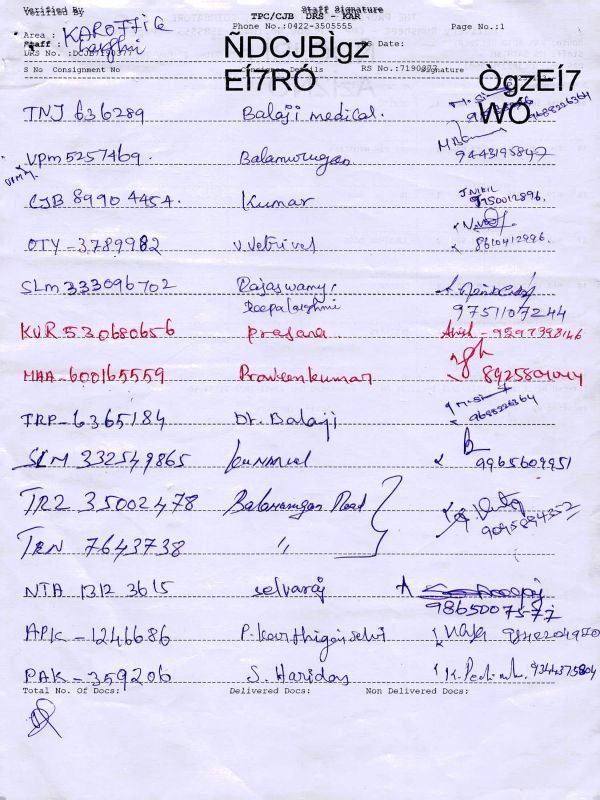 Verified By Staff Signature
TPC/CJB DRS - KAR
Phone No.:0422-3505555 Page No.:1
Area : KAROFFIC
Staff :
DRS No. :DCJB7190377 RS Date:
ÑDCJBÌgz
EÍ7RÓ
ÒgzEÍ7
WÓ
S No Consignment No Consignee Details RS No.:7190377 Signature
TNJ 636289 Balaji medical. 9688226364
VPM 5257469. Balamurugan 9443195847
CJB 89904454. Kumar J.NIKIL 9750012896.
OTY - 3789982 V. Vetrivel 8610412996.
SLM 333096702 Rajaswamy, 9751107244
Deepalakshmi
KUR 530680656 prasana 9597398146
MAA - 600165559 Praveenkumar 8925801044
TRP - 6365184 Dr. Balaji 9688226364
SLM 332549865 9965609951
TRZ 35002478 Balamurugan Road 9095894352
TEN 7643738 〃
NTA 1312 3615 selvaraj 9865007577
APK - 1246686 P. Karthigaiselvi
PAK - 359206 S. Haridas 9344375804
Total No. Of Docs: Delivered Docs: Non Delivered Docs: